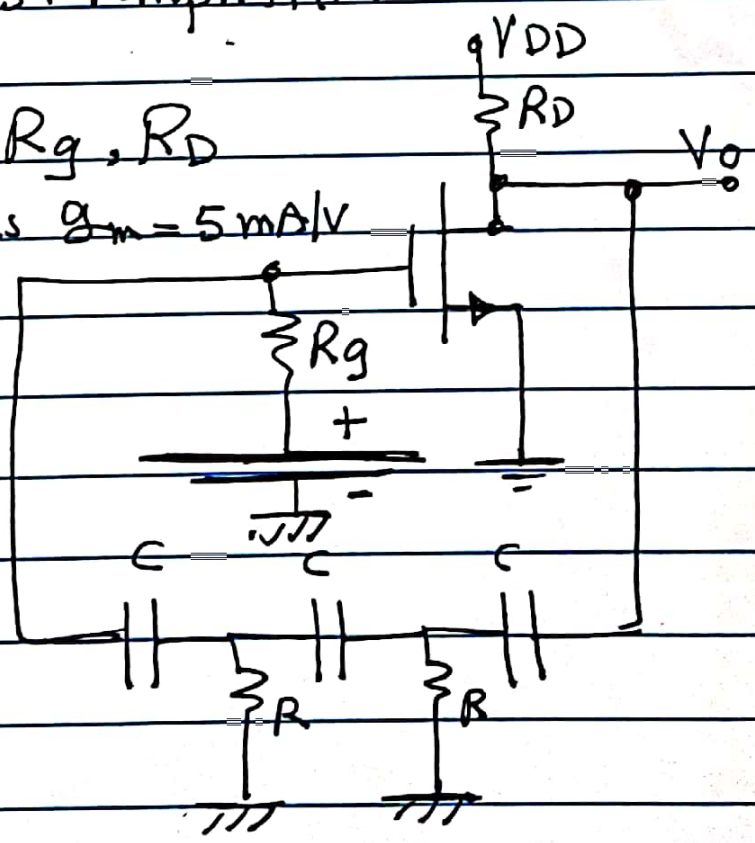 VDD
RD
Rg, RD
Vo
s gm = 5 mA/V
Rg
+
-
C C C
R R